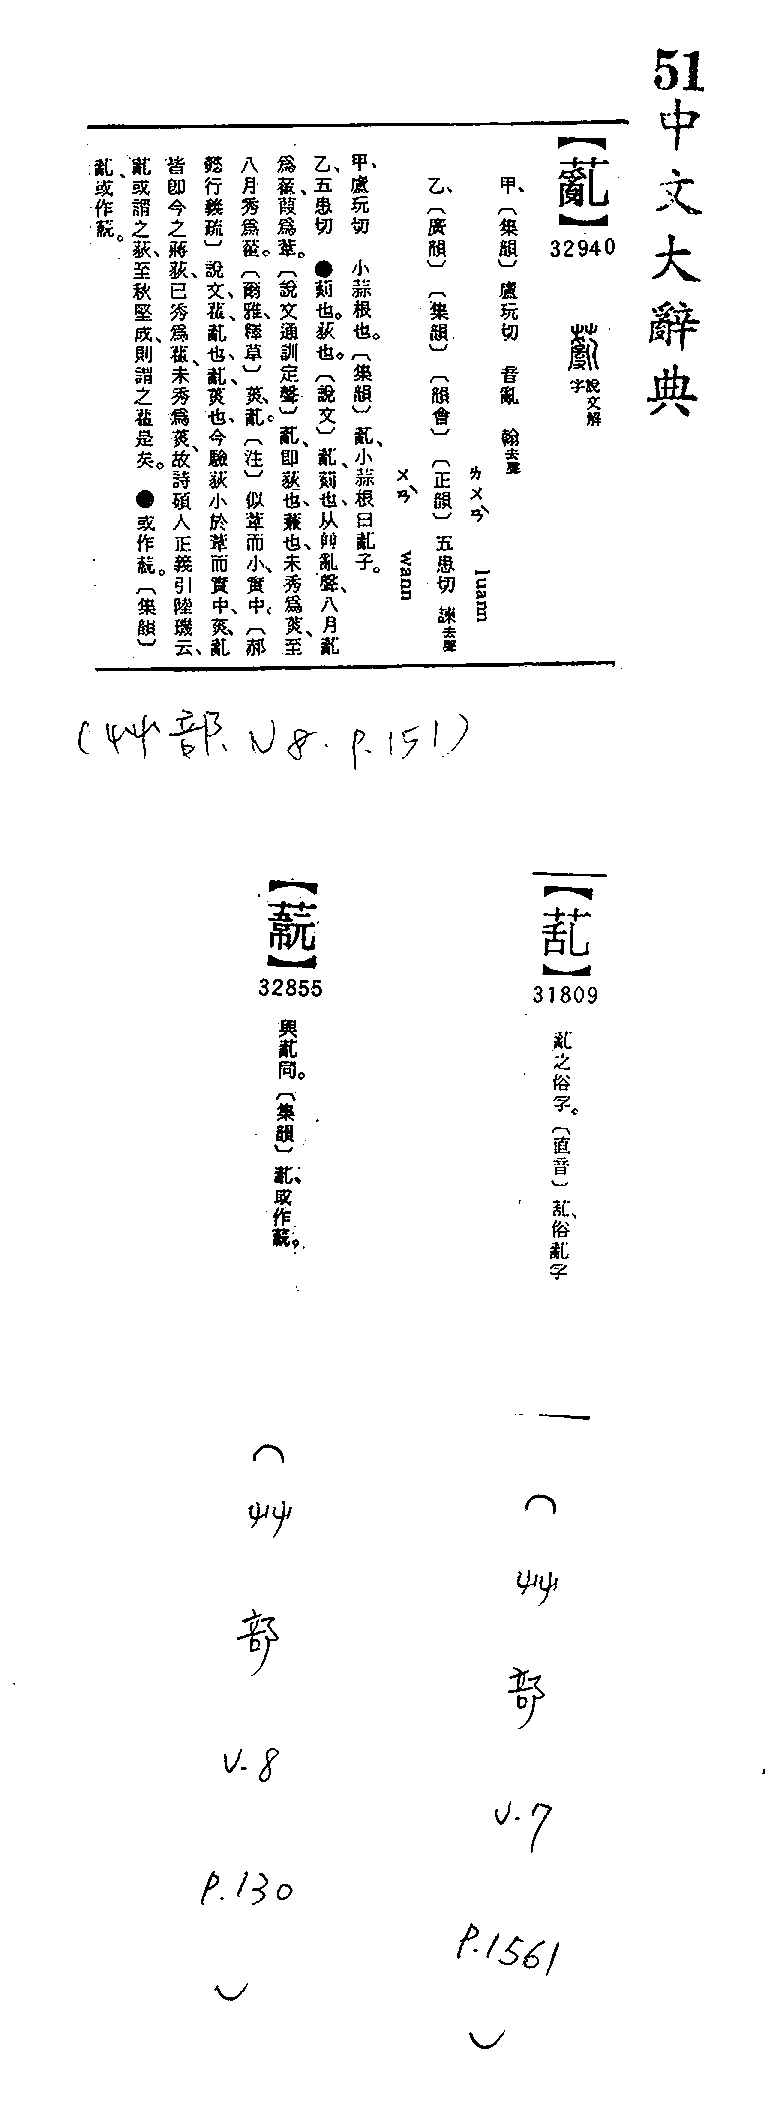 51
中文大辭典
【薍】
32940
說文解
字
甲、〔集韻〕盧玩切 音亂 翰去聲
ㄌㄨㄢˋ luann
乙、〔廣韻〕〔集韻〕〔韻會〕〔正韻〕五患切 諫去聲
ㄨㄢˋ wann
甲、盧玩切 小蒜根也。〔集韻〕薍、小蒜根曰薍子。
乙、五患切 ●薍也。荻也。〔說文〕薍、䓆也、从艸亂聲、八月薍
為萑、葭為葦。〔說文通訓定聲〕薍、即荻也、蒹也、未秀為菼、至
八月秀為萑。〔爾雅、釋草〕菼、薍。〔注〕似葦而小、實中。〔郝
懿行義疏〕說文、萑、薍也、薍、菼也、今驗荻小於葦而實中、菼、薍
皆即今之蔣荻、已秀為萑、未秀為菼、故詩碩人正義引陸璣云、
薍或謂之荻、至秋堅成、則謂之萑是矣。 ●或作䕣。〔集韻〕
薍、或作䕣。
(艸部 V8. P.151)
【𦯎】
31809
薍之俗字。〔直音〕𦯎、俗薍字
(艸部 V.7 P.1561)
【䕣】
32855
與薍同。〔集韻〕薍、或作䕣。
(艸部 V.8 P.130)